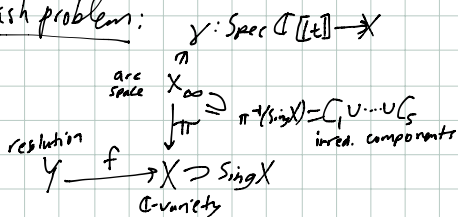 ish problem:
γ: Spec ℂ[[t]] → X
arc space X_∞
π
π⁻¹(Sing X) = C₁ ∪ ⋯ ∪ C_s
irred. components
reslution
Y —f→ X ⊃ Sing X
ℂ-variety